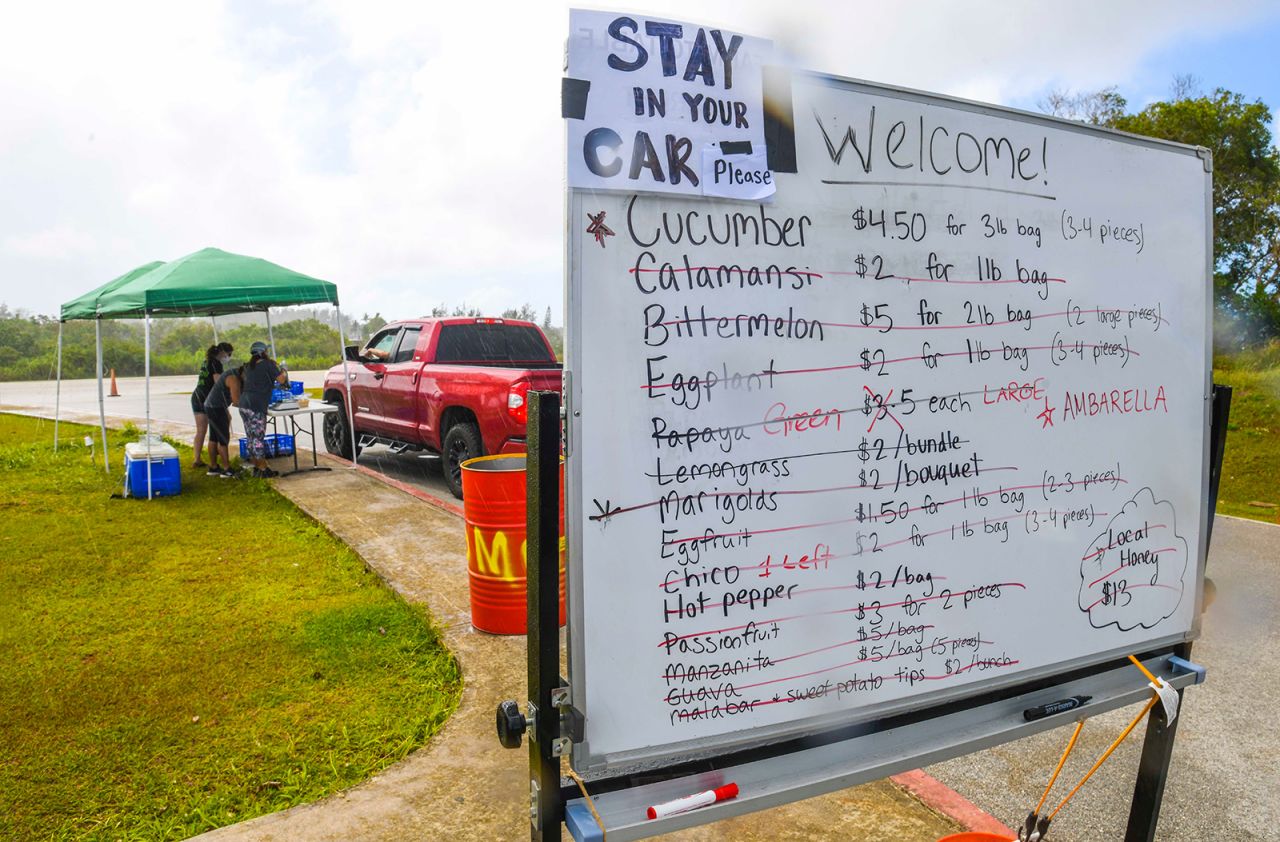 STAY
IN YOUR
CAR
Please
Welcome!
Cucumber $4.50 for 3lb bag (3-4 pieces)
Calamansi $2 for 1lb bag
Bittermelon $5 for 2lb bag (2 large pieces)
Eggplant $2 for 1lb bag (3-4 pieces)
Papaya Green .5 each LARGE
AMBARELLA
Lemongrass $2/bundle
Marigolds $2/bouquet
Eggfruit $1.50 for 1lb bag (2-3 pieces)
Chico 1 Left $2 for 1lb bag (3-4 pieces)
Hot pepper $2/bag
Passionfruit $3 for 2 pieces
Manzanita $5/bag
Guava $5/bag (5 pieces)
Malabar * sweet potato tips $2/bunch
Local
Honey
$13